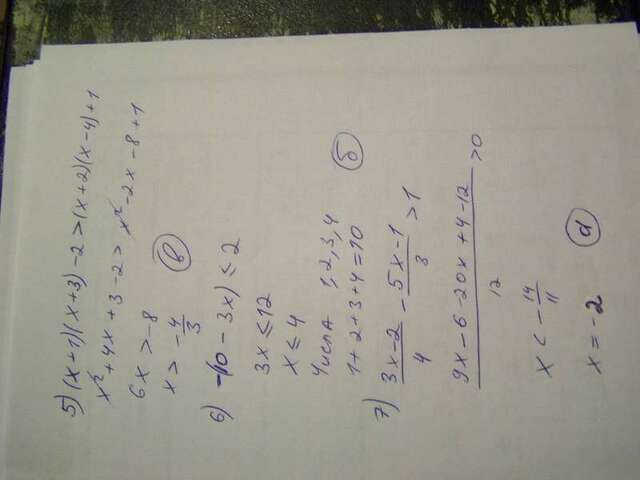 5) (x+1)(x+3)-2>(x+2)(x-4)+1
x²+4x+3-2> x²-2x-8+1
6x>-8
x>-4/3 (в)
6) -(10-3x)≤2
3x≤12
x≤4
Числа 1,2,3,4
1+2+3+4=10 (б)
7) (3x-2)/4 - (5x-1)/3 >1
(9x-6-20x+4-12)/12 >0
x<-14/11
x=-2 (d)